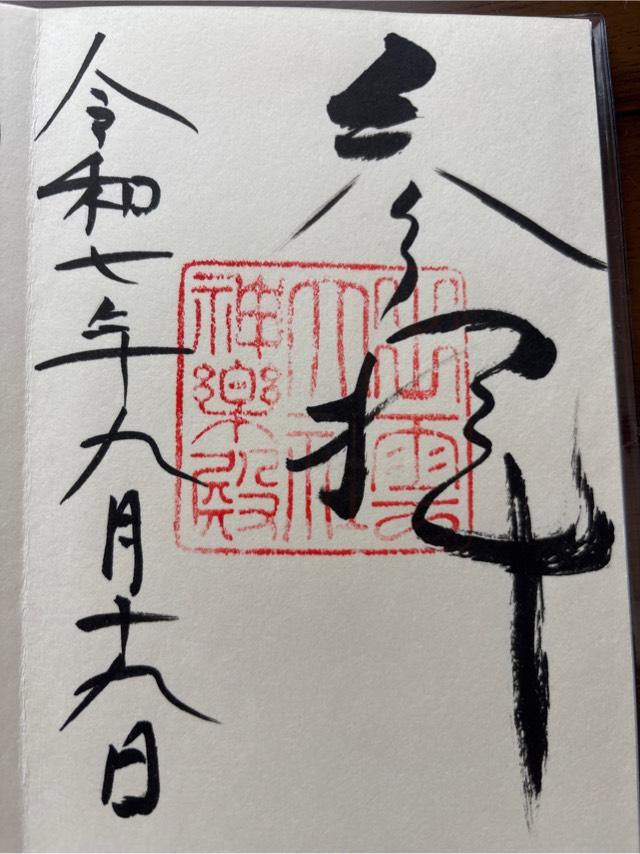 參拝
出雲
大社
神樂殿
令和七年九月十九日